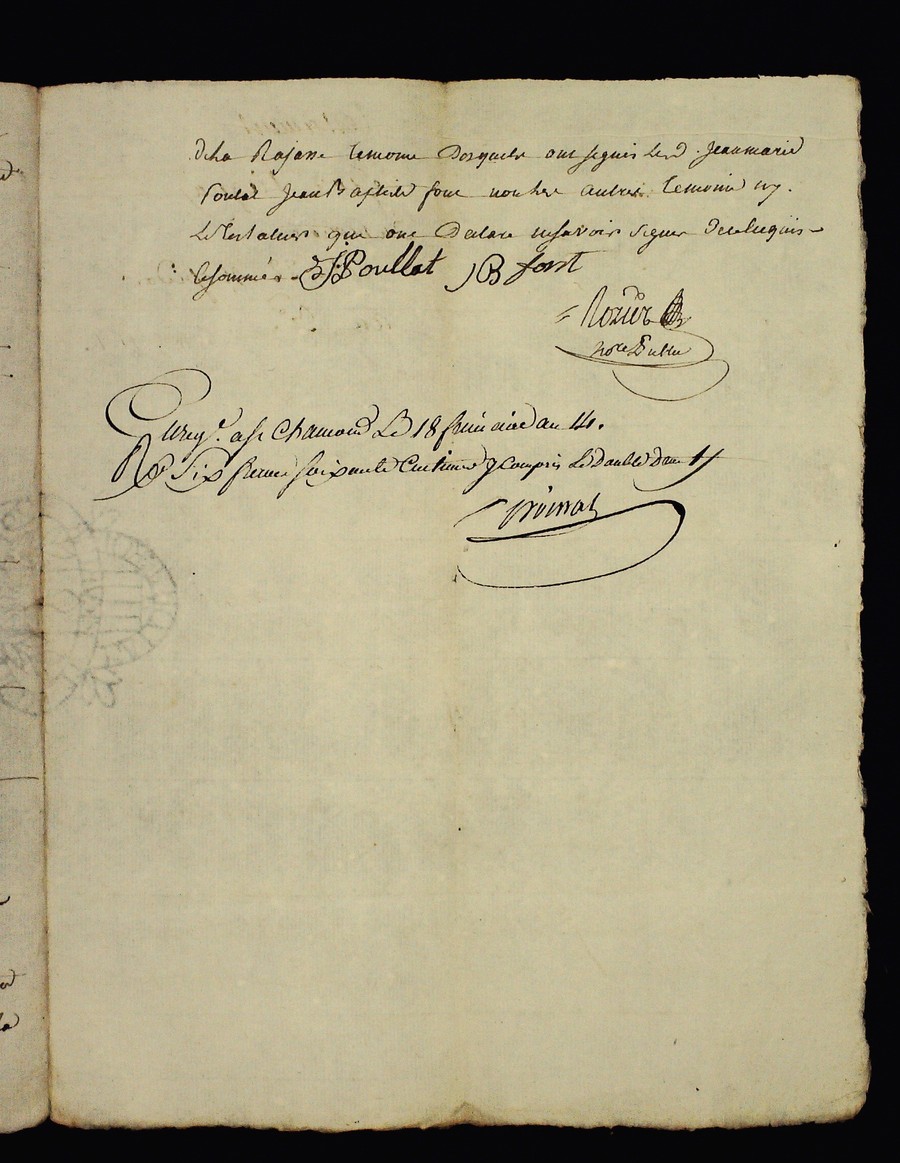 dela Rajasse temoins desquels ont signés led. Jeanmarie
Poulat Jean Baptiste font non les autres temoins ny
le testateur qui ont declare ne savoir signer de ce requis
et sommés JPoullat JB font
Rozier
No.re Public
Enreg.é a St Chamond Le 18 frimaire an 14.
R Six francs soixante Centimes y compris Le Double D'un